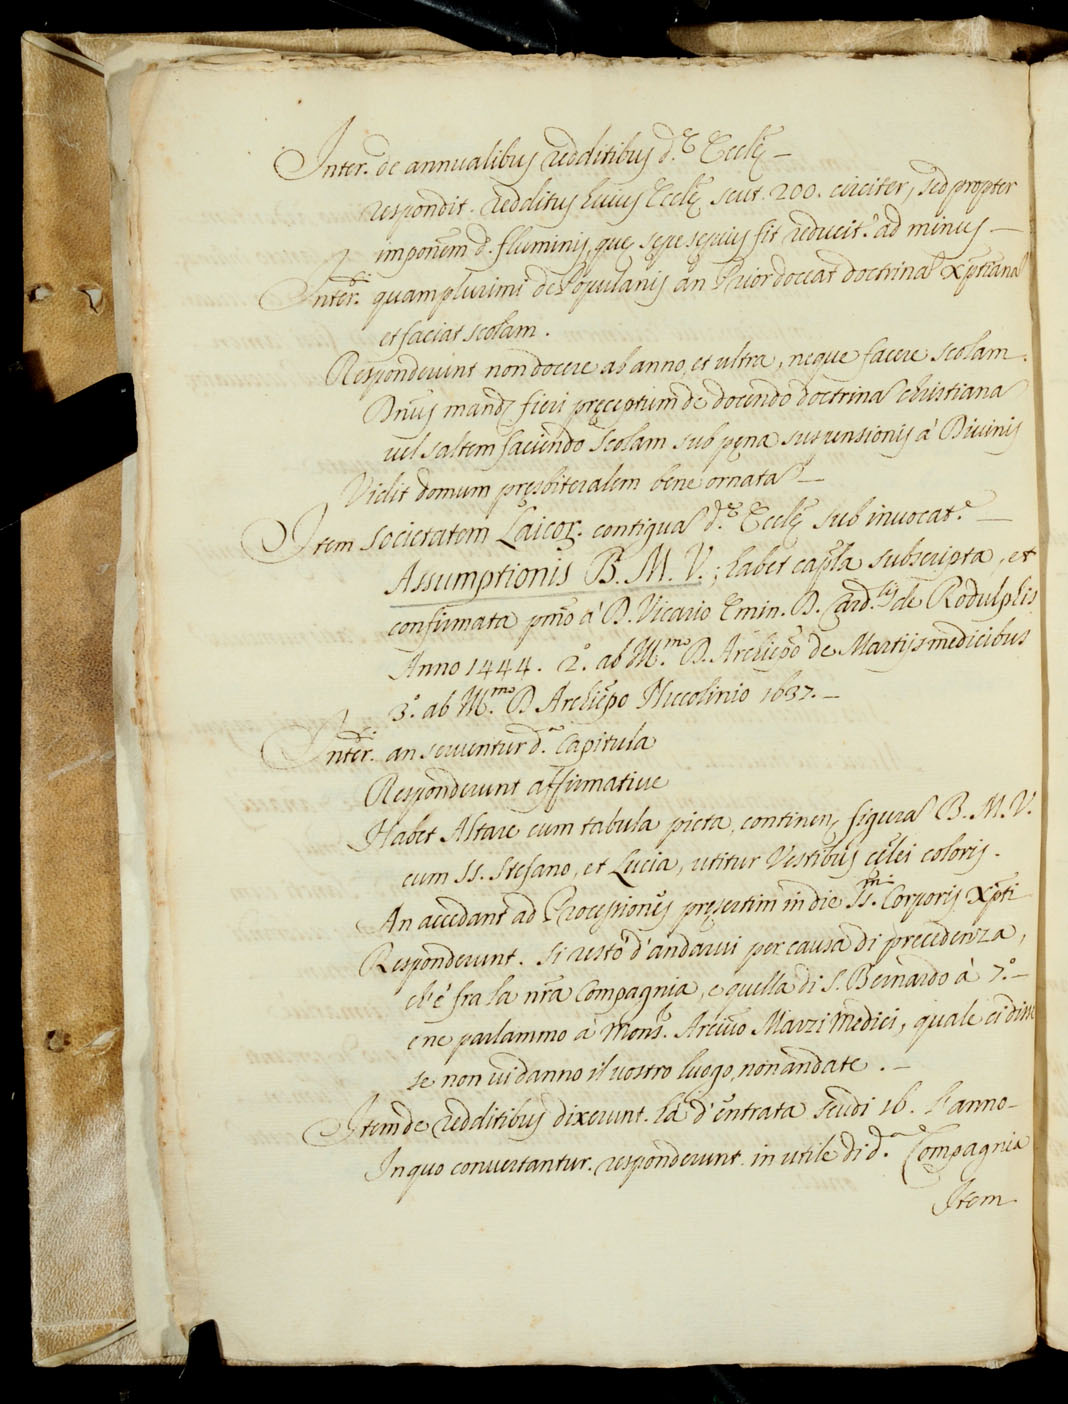 Inter. de annualibus redditibus d.ę Eccłę –
respondit. redditus huius Eccłę scut. 200. circiter, sed propter
imponem d. fluminis, quę sępe sępius fit reducit.r ad minus –
Inter.ti quamplurimi de Populanis an Prior doceat doctrinā Xp̄tianā
et faciat scolam.
Responderunt non docere ab anno, et ultra, neque facere scolam.
Dn̄us mand. fieri pręceptum de docendo doctrinā christianā
vel saltem faciendo scolam sub pęna suspensionis à Divinis
Vidit domum pręsbiteralem bene ornatā –
Item societatem Laicor. contiguā d.ę Eccłę sub invocat.e –
Assumptionis B. M. V.; habet cap̄la subscripta, et
confirmata pm̄o à D. Vicario Emin. D. Card.lis de Rodulphis
Anno 1444. 2.o ab Ill.mo D. Archiep̄o de Martijs medicibus
3.o ab Ill.mo D. Archiep̄o Niccolinio 1637. –
Inter.ti an serventur d.a Capitula
Responderunt affirmative
Habet Altare cum tabula picta, continen. figurā B. M. V.
cum SS. Stefano, et Lucia, utitur Vestibus cęlei coloris.
An accedant ad Processiones pręsertim in die SS.mi Corporis Xp̄ti
Responderunt. Si restò d'andarvi per causa di precedenza,
ch'è fra la nr̄a Compagnia, e quella di S. Bernardo à 7.o –
e ne parlammo à Mons. Arciv̄o Marzi Medici, quale ci disse
se non vi danno il vostro luogo, non andate. –
Item de redditibus dixerunt. hà d'entrata scudi 16. l'anno –
In quo convertantur. responderunt. in utile di d.a Compagnia
Item